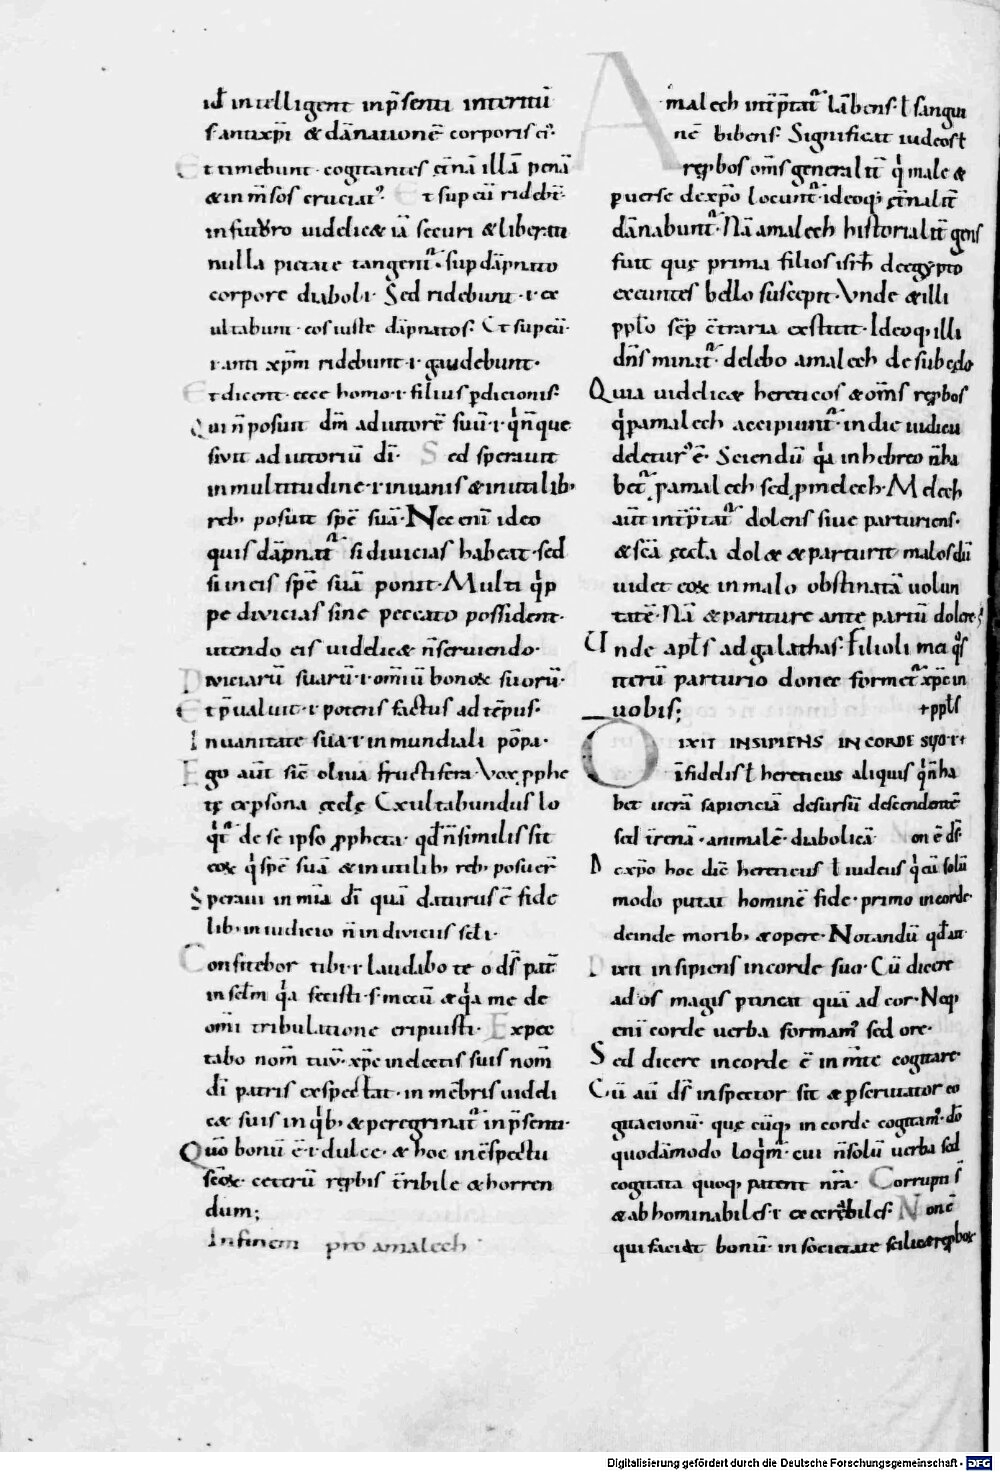 id intelligent inp̄senti interitū
s. antixp̄i & dānationē corporis ei᾽.
Et timebunt · cogitantes ęt̄nā illā penā
& in mēsos cruciat᾽. Et sup eū ridebt̄·
in futuro uidelic& iā securi & liberati
nulla pietate tangent̄· sup dāpnato
corpore diaboli· Sed ridebunt ·i· ex
ultabunt · eos iuste dāpnatos· Et sup eū·
i· anti xp̄m ridebunt ·i· gaudebunt·
Et dicent · ecce homo ·i· filius p̄dicionis·
Qui n̄ posuit dm̄ adiutorē suū ·i· q̄ n̄ que
siuit adiutoriū dī· Sed sperauit
in multitudine ·i· in uanis & inutilib;
reb; posuit spē suā· Nec enī ideo
quis dāpnat̄ si diuicias habeat · sed
si in eis spē suā ponit· Multi q̄p
pe diuicias sine peccato possident·
utendo eis uidelic& n̄ seruiendo·
Diuiciarū suarū ·i· om̄iū bonoꝝ suorū·
Et p̄ualuit ·i· potens factus ad tēpus·
In uanitate sua ·i· in mundiali pōpa·
Ego aut̄ sic̄ oliua fructifera· Vox p̱phe
tę ex p̱sona ęccłę Exultabundus lo
q̄t̄ de se ipso p̱pheta· qd̄ n̄ similis sit
eoꝝ q̄ spē suā & inutilib; reb; posuer̄
Speraui in mīa dī quā daturus ē fide
lib; in iudicio n̄ in diuiciis scłi·
Confitebor tibi ·i· laudabo te o ds̄ pat̄
in scł̄m q̄a fecisti ·s· mecū & q̄a me de
om̄i tribulatione eripuisti· Expec
tabo nom̄ tuū· xp̄c in electis suis nom̄
dī patris exspectat · in mēbris uideli
c& suis in q̄b; & peregrinat̄ in p̄senti·
Qm̄ bonū ē ·i· dulce · & hoc in cspectu
scōꝝ· ceterū rep̱bis t̄ribile & horren
dum;
In finem pro amalech
Amalech int̄p̄tat̄ lābens · ł sangui
nē bibens· Significat iudeos ł
rep̱bos om̄s generalit̄ q̄ male &
p̱uerse de xp̄o locunt̄· ideoq; ęt̄nalit̄
dānabunt̄· Nā amalech historialit̄ gens
fuit quę prima filios isrł de egypto
exeuntes bello suscepit· Vnde & illi
ppł̄o sēp c̄traria exstitit· Ideoq; illi
dn̄s minat̄· delebo amalech de sub cęlo
Quia uidelic& hereticos & om̄s rep̱bos
q̄ p̱ amalech accipiunt̄· in die iudicii
deletur᾽ ē· Sciendū q̄a in hebreo n̄ ha
bet̄ p̱ amalech sed p̱ melech· Melech
aut̄ int̄p̄tat̄ dolens siue parturiens·
& scā ęccła dol& & parturit malos dū
uidet eos in malo obstinatā uolun
tatē· Nā & pariture ante partū dolores
Unde apłs ad galathas· Filioli mei q̄s
iterū parturio donec formet̄ xp̄c in
uobis; + ppłs
DIXIT INSIPIENS IN CORDE SUO ·i·
īfidelis ł hereticus aliquis q̄ n̄ ha
bet uerā sapienciā desursū descendentē
sed t̄renā · animalē · diabolicā· Non ē ds̄·
De xp̄o hoc dic̄ hereticus ł iudeus q̄ eū solū
modo putat hominē fide · primo in corde·
deinde morib; & opere· Notandū qd̄ ait
Dixit insipiens in corde suo· Cū dicere
ad os magis p̱tineat quā ad cor· Neq;
enī corde uerba formam᾽ sed ore·
Sed dicere in corde ē in m̄te cogitare·
Cū aū ds̄ inspector sit & p̱scrutator co
gitacionū· quę cūq; in corde cogitam᾽· dō
quodāmodo loq̄m᾽· cui n̄ solū uerba sed
cogitata quoq; patent nr̄a· Corrupti s̄
& abhominabiles ·i· execrabiles· Non ē
qui faciat bonū· in societate scilic& rep̱boꝝ
Digitalisierung gefördert durch die Deutsche Forschungsgemeinschaft - DFG